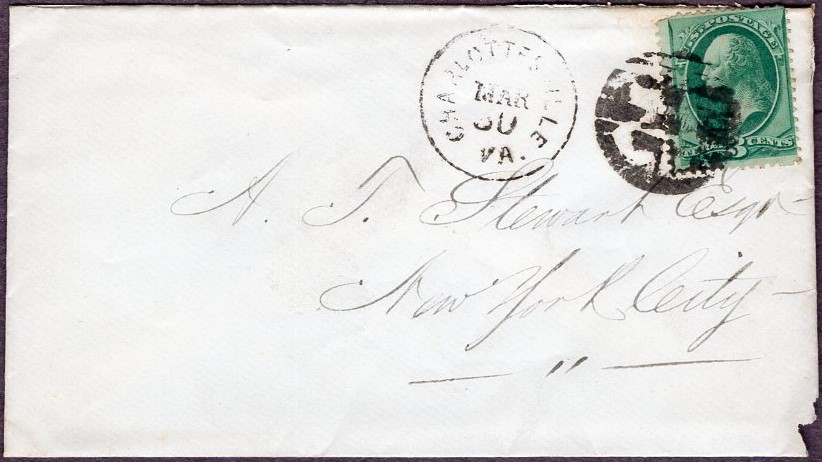 U.S. POSTAGE
CENTS
CHARLOTTESVILLE
MAR
30
VA.
A. T. Stewart Esqr
New York City
"